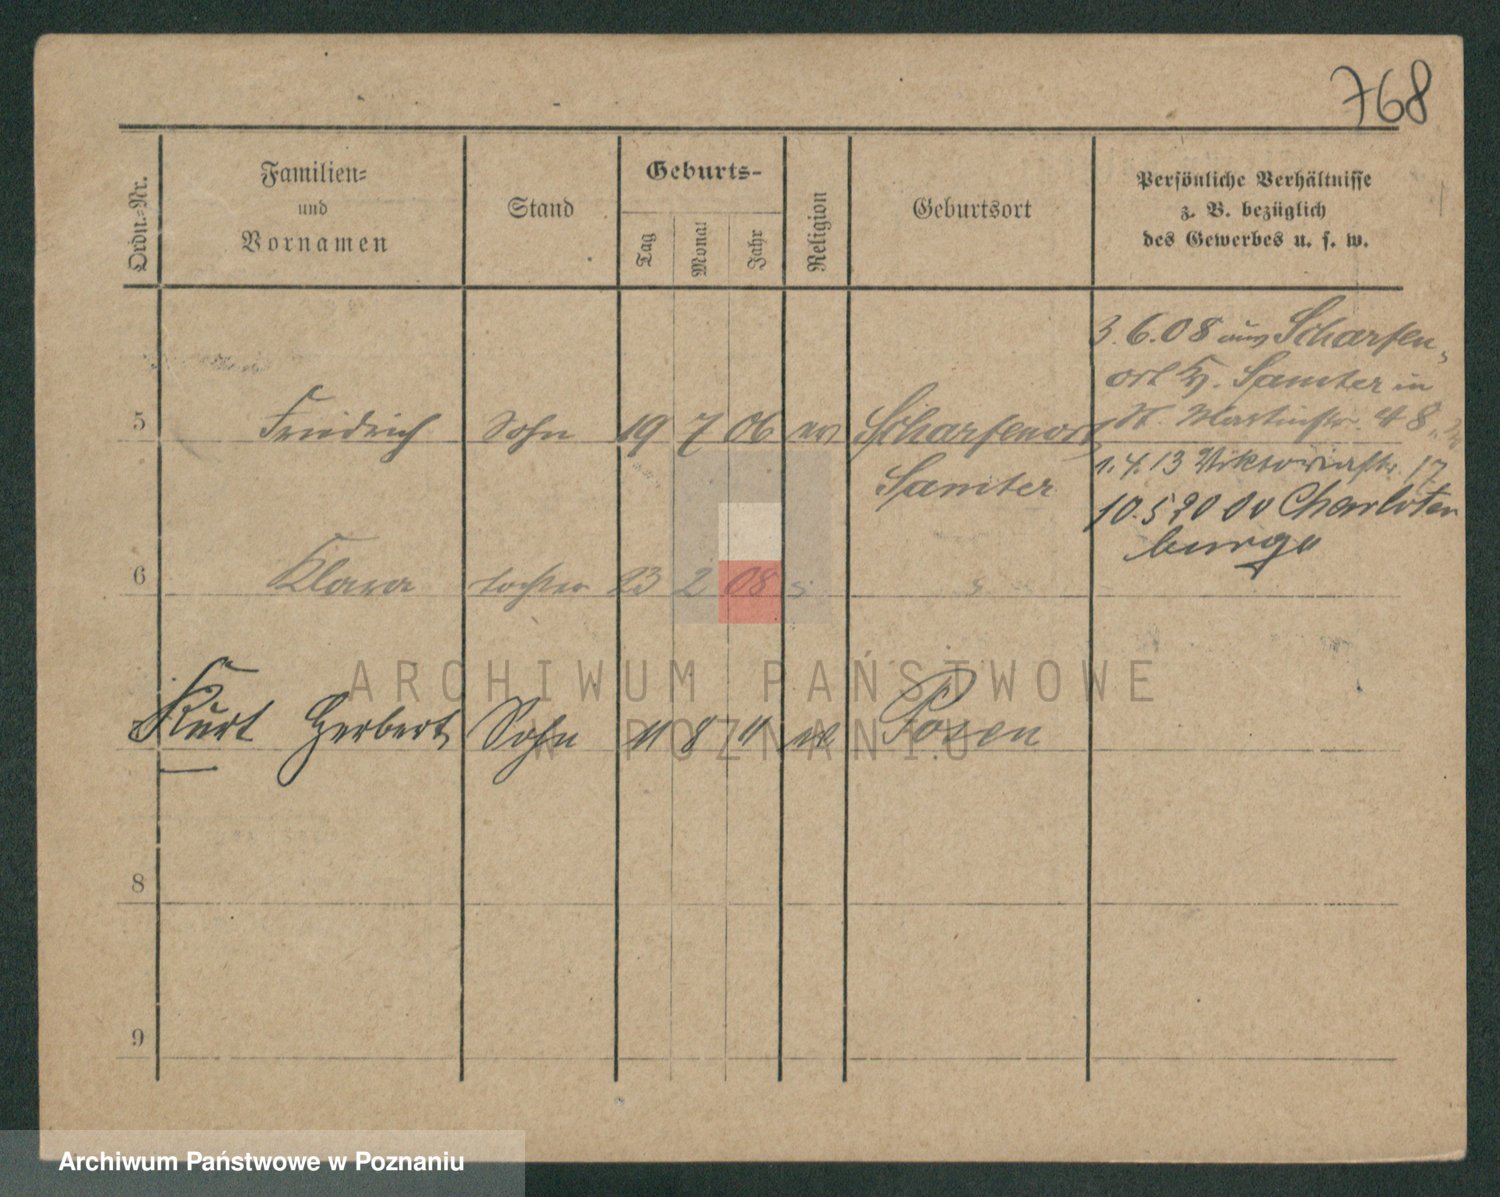 768
Ordn.-Nr.
Familien-
und
Vornamen
Stand
Geburts-
Tag
Monat
Jahr
Religion
Geburtsort
Persönliche Verhältnisse
z. B. bezüglich
des Gewerbes u. s. w.
3.6.08 aus Scharfen-
ort Kr. Samter in
St. Martinstr. 48
5 Friedrich Sohn 19 7 06 ev Scharfenort
Samter
1.4.13 Viktoriastr. 17
10.5.20 Charloten
burg
6 Klara Tochter 23 2 08
Kurt Herbert Sohn 11 8 11 ev Posen
8
9
ARCHIWUM PAŃSTWOWE
W POZNANIU
Archiwum Państwowe w Poznaniu